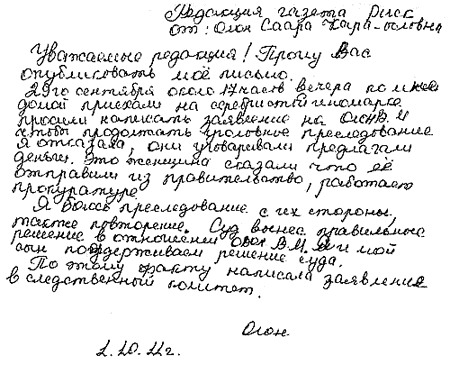 Редакция газета Риск
от: Оюн Саара Кара-ооловна
Уважаемые редакция! Прошу Вас
опубликовать моё письмо.
29го сентября около 17часов вечера ко мне
домой приехали на серебристой иномарке
просили написать заявление на Оюн В. И
чтобы продолжать уголовное преследование
Я отказала, они уговаривали предлагали
деньги. Это женщина сказали что её
отправили из правительство, работает
прокуратуре.
Я боюсь преследование с их стороны,
также повторение. Суд вынес правильное
решение в отношении Оюн В.М. Я и мой
сын поддерживаем решение суда.
По этому факту написала заявления
в следственный комитет.
Оюн.
1.10.11г.